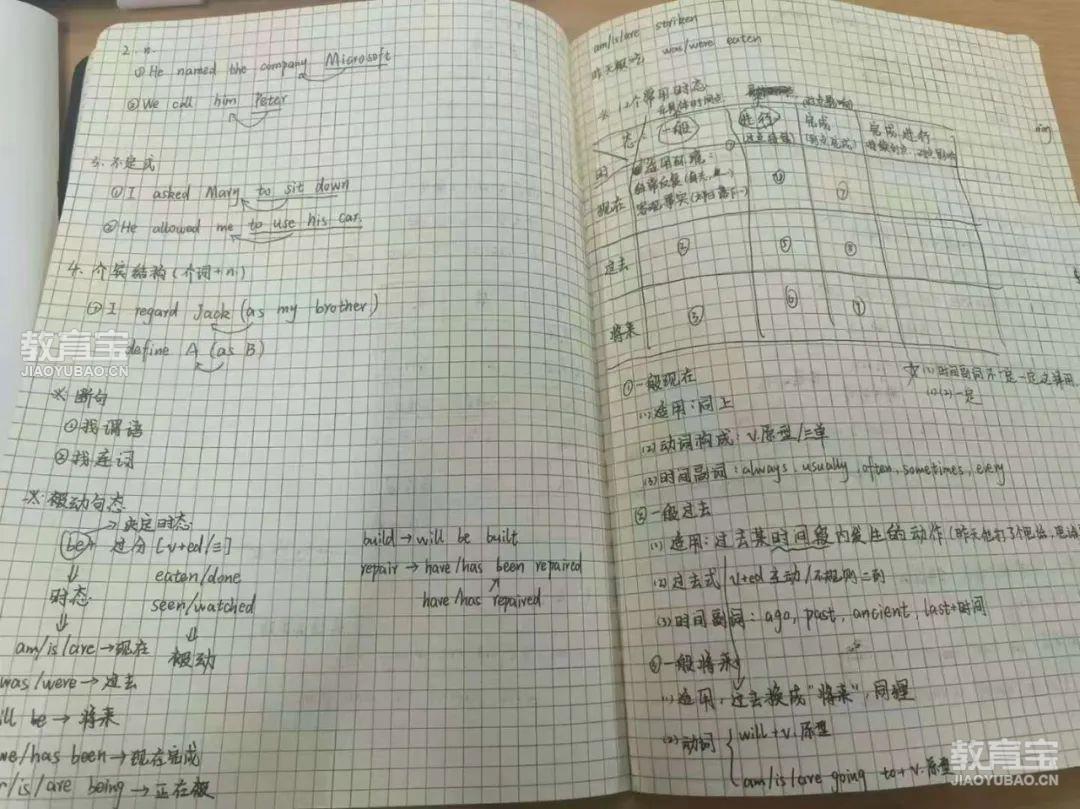 2. n.
① He named the company Microsoft
② We call him Peter
3. 不定式
① I asked Mary to sit down
② He allowed me to use his car.
4. 介宾结构(介词+n.)
① I regard Jack (as my brother)
define A (as B)
※ 断句
① 找谓语
② 找连词
※ 被动句态
→决定时态
be+ 过分 [v+ed/三]
eaten/done
时态 seen/watched
am/is/are→现在 被动
was/were→过去
ill be→将来
ve/has been→现在完成
/is/are being→正在被
build→will be built
repair→have/has been repaired
have/has repaired
am/is/are striken
was/were eaten
昨天被吃
※ 12个常用时态
态 一般 进行 完成 完成进行
时
现在 适用环境:
④ ⑦
过去 ② ⑤ ⑧
将来 ③ ⑥ ⑨
① 一般现在
(1) 适用:同上
(2) 动词构成:v.原型/三单
(3) 时间副词:always, usually, often, sometimes, every
② 一般过去
(1) 适用:过去某时间段内发生的动作
(2) 过去式 v+ed 主动/不规则
(3) 时间副词:ago, past, ancient, last+时间
③ 一般将来
(1) 适用:过去换成"将来",同理
(2) 动词 will+v.原型
am/is/are going to+v.原型
教育宝
JIAOYUBAO.CN
教育宝
JIAOYUBAO.CN